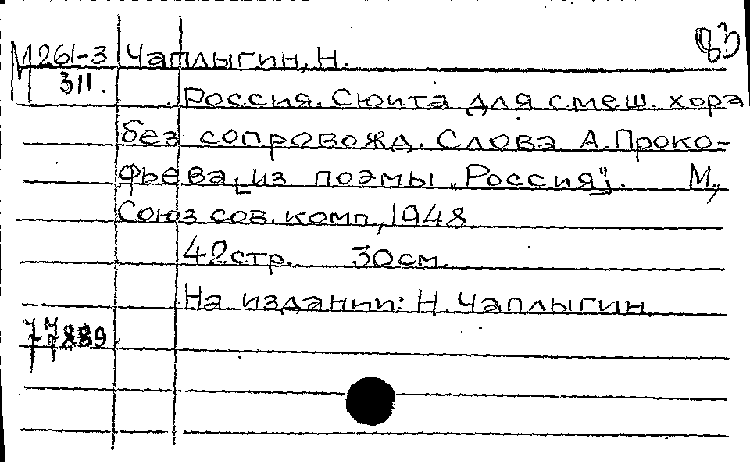 М261-3 Чаплыгин, Н. 83
311.
Россия. Сюита для смеш. хора
без сопровожд. Слова А. Проко-
фьева [из поэмы „Россия"]. М,
Союз сов. комп., 1948
42стр. 30см.
На издании: Н. Чаплыгин.
77889